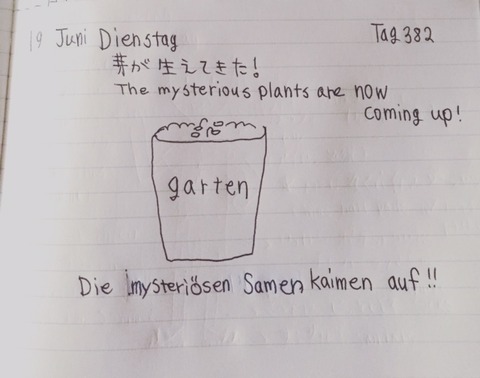 19 Juni Dienstag
Tag 382
芽が生えてきた!
The mysterious plants are now
coming up!
garten
Die mysteriösen Samen kaimen auf!!